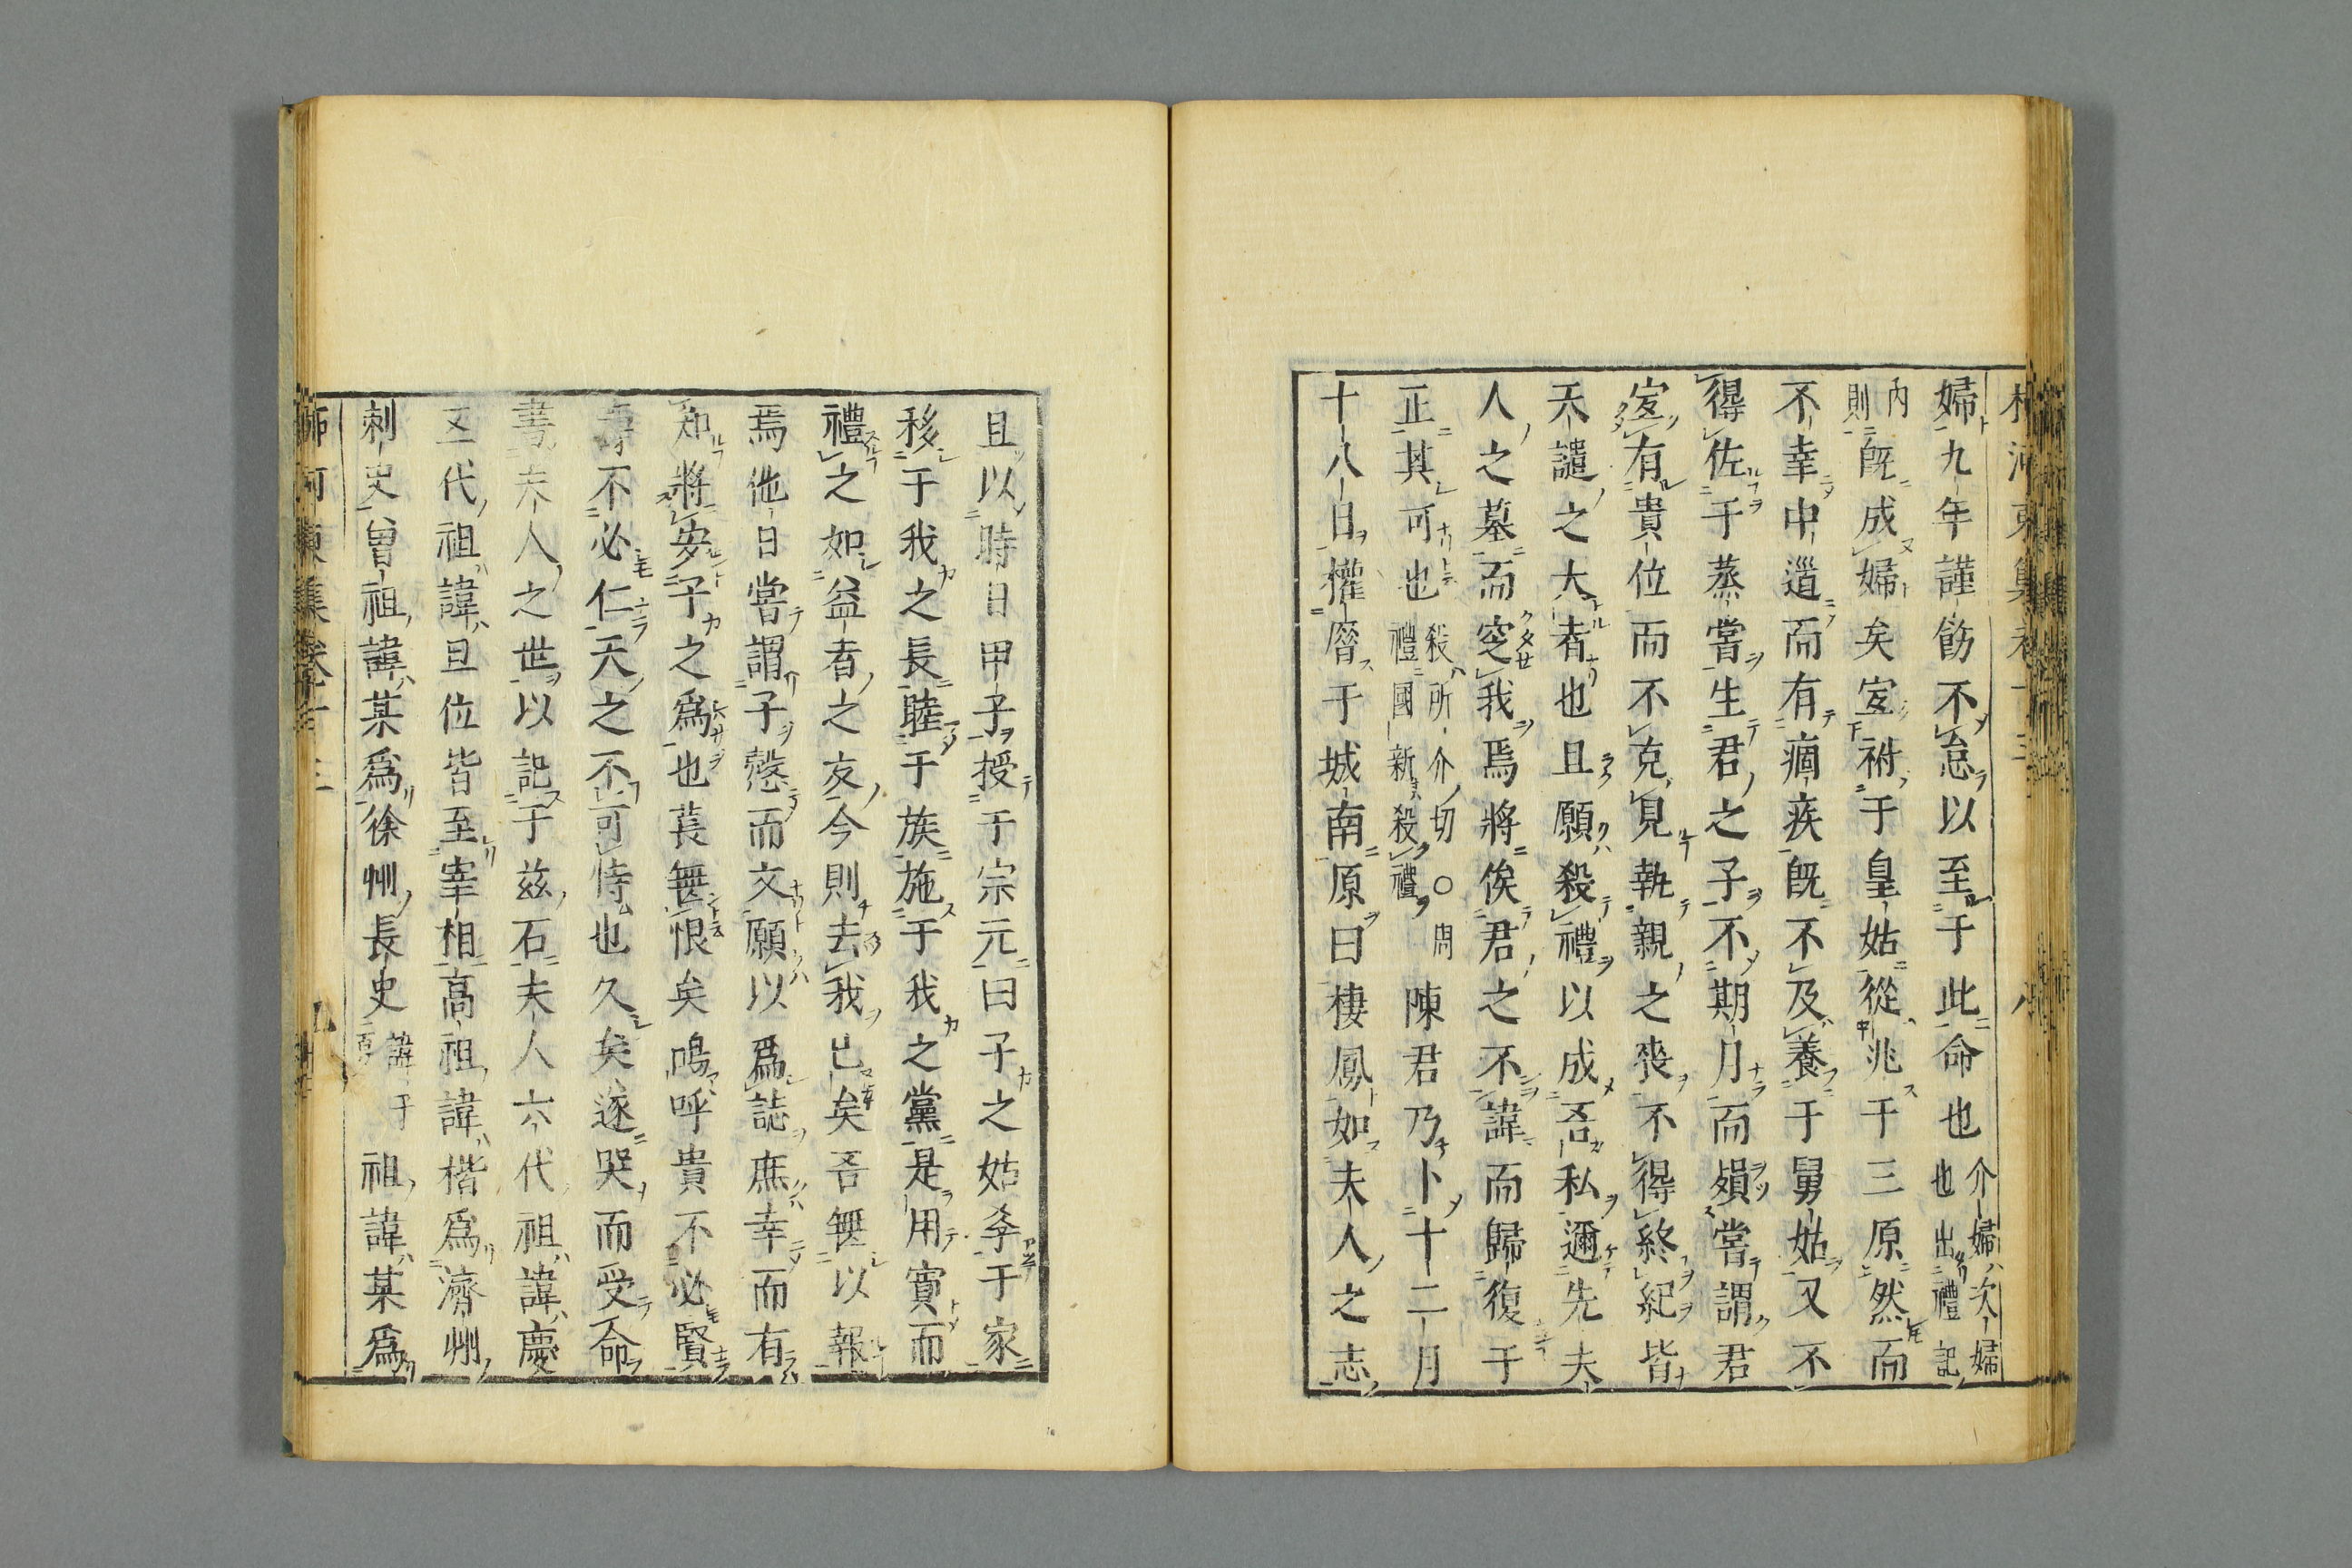 婦九年謹飭不怠以至于此命也介婦次婦也出禮記
內則既成婦矣宜祔于皇姑從兆于三原然而
不幸中道而有痼疾既不及養于舅姑又不
得佐于蒸嘗生君之子不期月而殞嘗謂君
宜有貴位而不克見執親之喪不得終紀皆
天譴之大者也且願殺禮以成吾私邇先夫
人之墓而窆我焉將俟君之不諱而歸復于
正其可也殺所介切○周禮國新殺禮陳君乃卜十二月
十八日權厝于城南原曰棲鳳如夫人之志
且以時日甲子授于宗元曰子之姑季于家
移于我之長睦于族施于我之黨是用賓而
禮之如益者之友今則去我已矣吾無以報
焉他日嘗謂子愨而文願以爲誌庶幸而有
知將安子之爲也萇無恨矣嗚呼貴不必賢
壽不必仁天之不可恃也久矣遂哭而受命
書夫人之世以記于茲石夫人六代祖諱慶
五代祖諱旦位皆至宰相高祖諱楷爲濟州
刺史曾祖諱某爲徐州長史諱子夏祖諱某爲
柳河東集卷十三